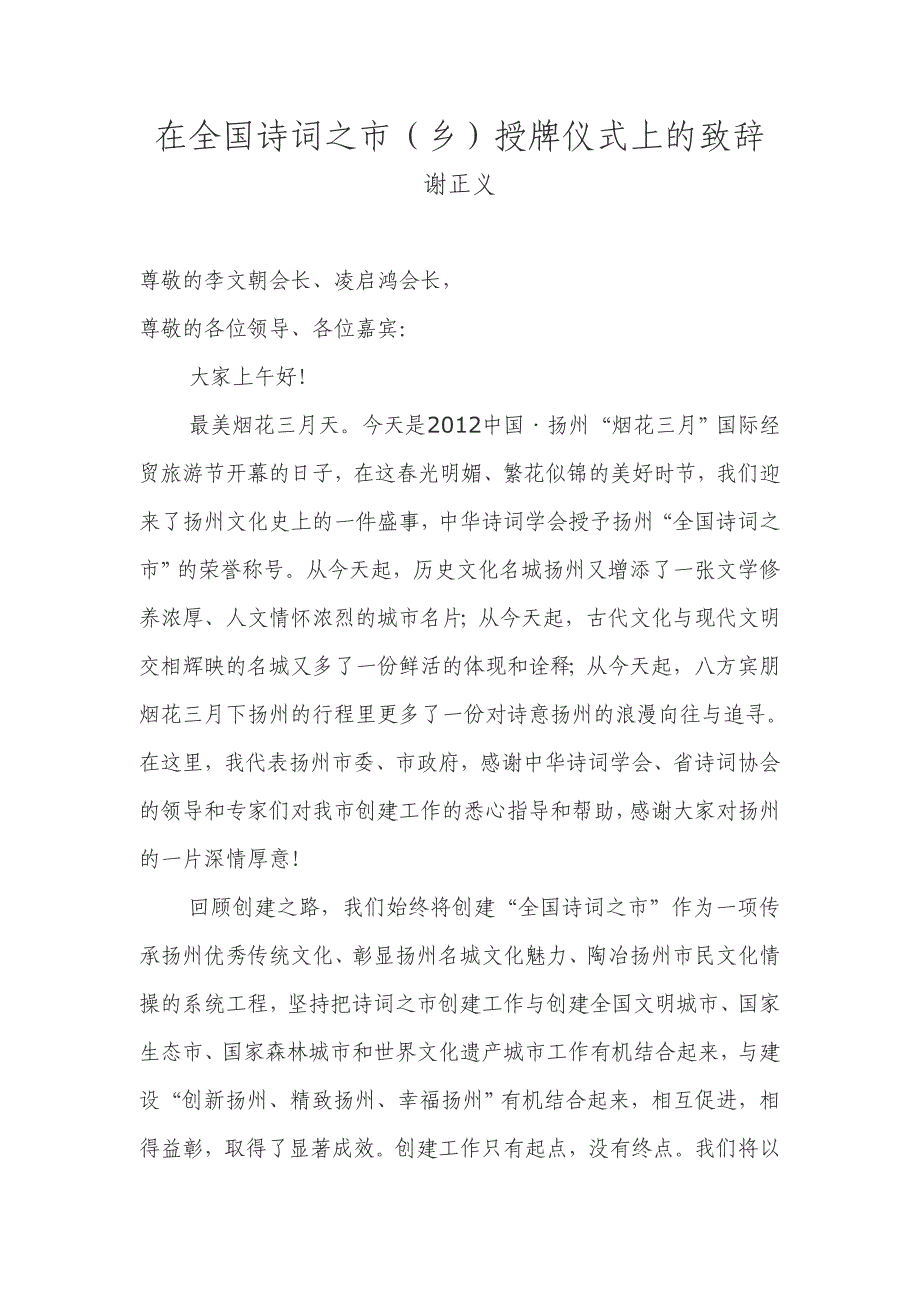 在全国诗词之市（乡）授牌仪式上的致辞
谢正义
尊敬的李文朝会长、凌启鸿会长，
尊敬的各位领导、各位嘉宾：
大家上午好！
最美烟花三月天。今天是2012中国·扬州“烟花三月”国际经
贸旅游节开幕的日子，在这春光明媚、繁花似锦的美好时节，我们迎
来了扬州文化史上的一件盛事，中华诗词学会授予扬州“全国诗词之
市”的荣誉称号。从今天起，历史文化名城扬州又增添了一张文学修
养浓厚、人文情怀浓烈的城市名片；从今天起，古代文化与现代文明
交相辉映的名城又多了一份鲜活的体现和诠释；从今天起，八方宾朋
烟花三月下扬州的行程里更多了一份对诗意扬州的浪漫向往与追寻。
在这里，我代表扬州市委、市政府，感谢中华诗词学会、省诗词协会
的领导和专家们对我市创建工作的悉心指导和帮助，感谢大家对扬州
的一片深情厚意！
回顾创建之路，我们始终将创建“全国诗词之市”作为一项传
承扬州优秀传统文化、彰显扬州名城文化魅力、陶冶扬州市民文化情
操的系统工程，坚持把诗词之市创建工作与创建全国文明城市、国家
生态市、国家森林城市和世界文化遗产城市工作有机结合起来，与建
设“创新扬州、精致扬州、幸福扬州”有机结合起来，相互促进，相
得益彰，取得了显著成效。创建工作只有起点，没有终点。我们将以